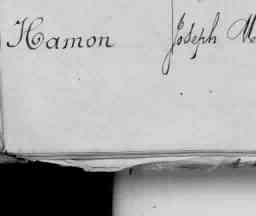 Hamon Joseph M